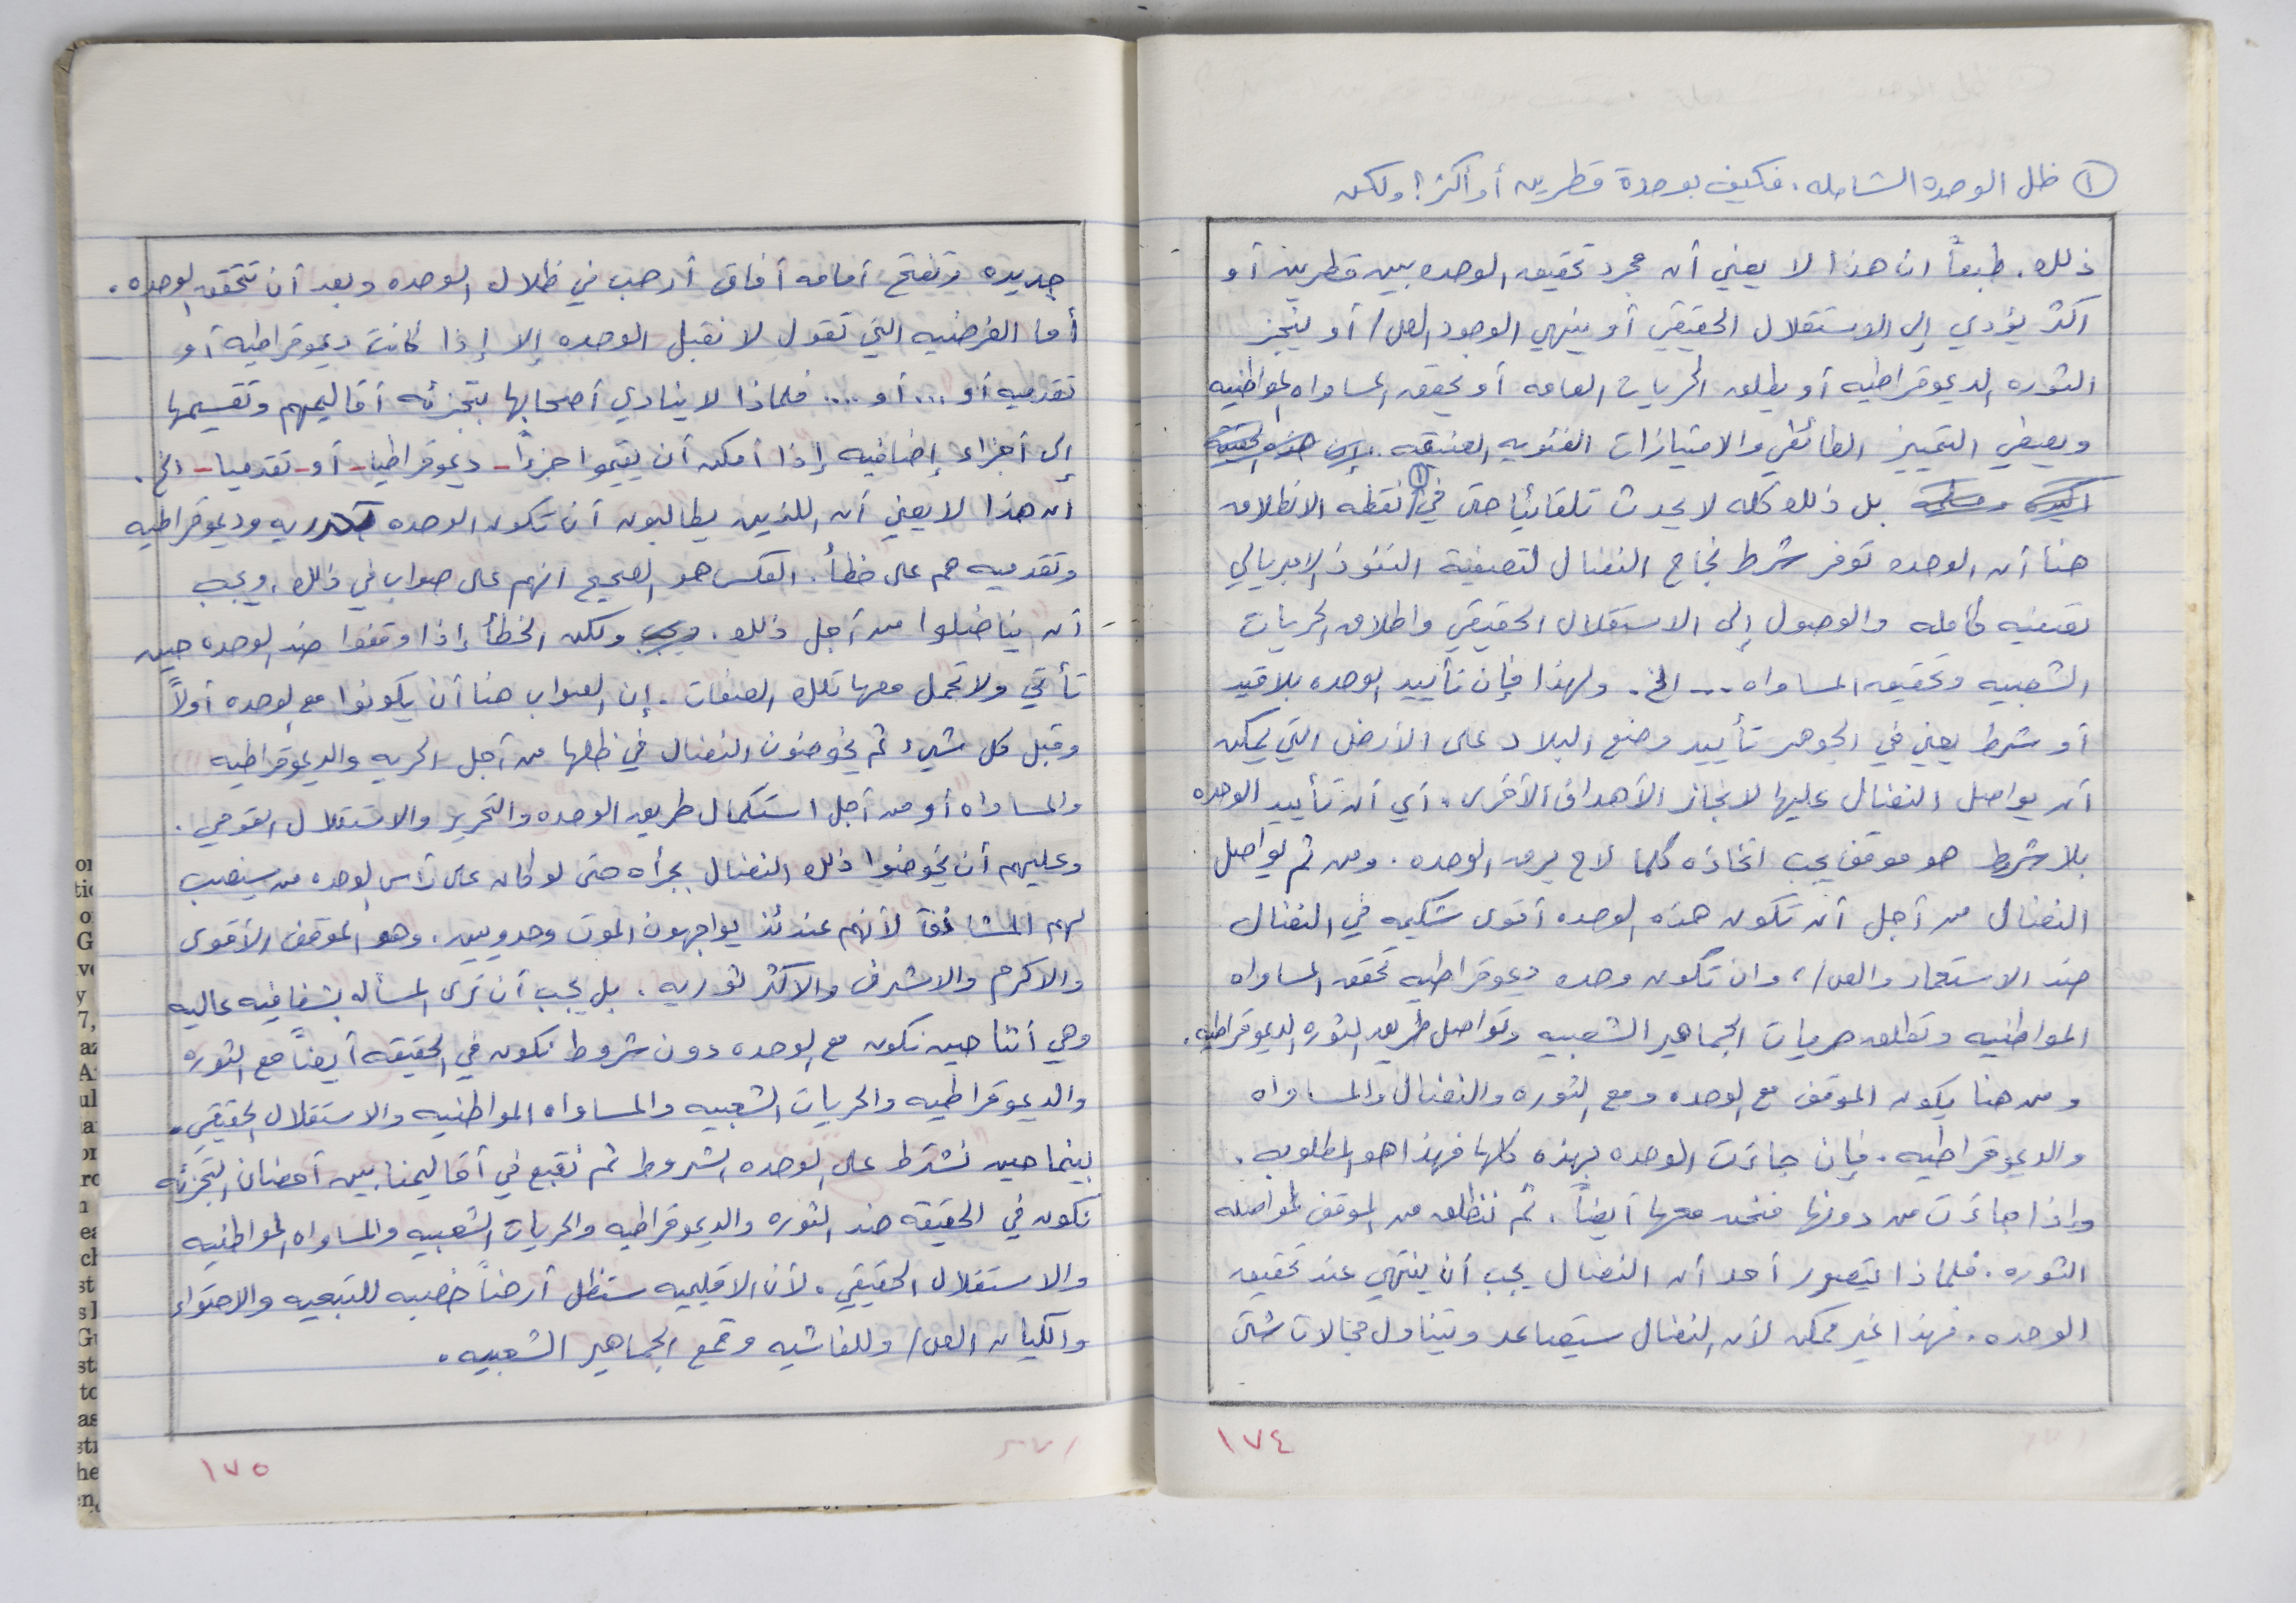 ① ظل الوحده الشامله. فكيف بوحدة قطرين أو أكثر؟ ولكن
ذلك. طبعاً ان هذا لا يعني أن مجرد تحقيق الوحده بين قطرين أو
اكثر يؤدي إلى الاستقلال الحقيقي أو ينهي الوجود الص/ أو ينجز
الثوره الديموقراطيه أو يطلق الحريات العامه أو يحقق المساواه المواطنيه
ويصفي التمييز الطائفي والامتيازات الفئويه الضيقه. إن هذه الحقيقه
بل ذلك كله لا يحدث تلقائياً حتى في ① نقطه الانطلاق
هنا أن الوحده توفر شرط نجاح النضال لتصفية النفوذ الامبريالي
تصفيه كامله والوصول إلى الاستقلال الحقيقي واطلاق الحريات
الشعبيه وتحقيق المساواه ... الخ. ولهذا فإن تأييد الوحده بلا قيد
أو شرط يعني في الجوهر تأييد وضع البلاد على الأرض التي يمكن
أن يواصل النضال عليها لانجاز الأهداف الأخرى. أي أن تأييد الوحده
بلا شرط هو موقف يجب اتخاذه كلما لاح برق الوحده. ومن ثم يواصل
النضال من أجل أن تكون هذه الوحده أقوى شكيمه في النضال
ضد الاستعمار والص/، وان تكون وحده ديموقراطيه تحقق المساواه
المواطنيه وتطلق حريات الجماهير الشعبيه وتواصل طريق الثوره الديموقراطيه.
ومن هنا يكون الموقف مع الوحده ومع الثوره والنضال والمساواه
والديموقراطيه. فإن جاءت الوحده بهذه كلها فهذا هو المطلوب.
وإذا جاءت من دونها فنحن معها أيضاً. ثم ننطلق من الموقف لمواصله
الثوره. فلماذا يتصور أحد أن النضال يجب أن ينتهي عند تحقيق
الوحده. فهذا غير ممكن لأن النضال سيتصاعد ويتناول مجالات شتى
١٧٤
جديده وتفتح أمامه آفاق أرحب في ظلال الوحده وبعد أن تتحقق الوحده.
أما الفرضيه التي تقول لا نقبل الوحده إلا إذا كانت ديموقراطيه أو
تقدميه أو ... أو .... فلماذا لا ينادي أصحابها بتجزئه أقاليمهم وتقسيمها
إلى أجزاء إضافيه إذا أمكن أن يقيموا جزءاً - ديموقراطيا - أو - تقدميا - الخ.
ان هذا لا يعني أن اللذين يطالبون أن تكون الوحده ثوريه وديموقراطيه
وتقدميه هم على خطأ. العكس هو الصحيح انهم على صواب في ذلك. ويجب
أن يناضلوا من أجل ذلك. ويجب ولكن الخطأ إذا وقفوا ضد الوحده حين
تأتي ولا تحمل معها تلك الصفات. إن الصواب هنا أن يكونوا مع الوحده أولاً
وقبل كل شيء ثم يخوضون النضال في ظلها من أجل الحريه والديموقراطيه
والمساواه أو من أجل استكمال طريق الوحده والتحرير والاستقلال القومي.
وعليهم أن يخوضوا ذلك النضال بجرأه حتى لو كان على رأس الوحده من سينصب
لهم المشانق لأنهم عندئذ يواجهون الموت وحدويين. وهو الموقف الأقوى
والاكرم والاشرف والاكثر ثوريه. بل يجب أن نرى المسأله بشفافيه عاليه
وهي أننا حين نكون مع الوحده دون شروط نكون في الحقيقه أيضاً مع الثوره
والديموقراطيه والحريات الشعبيه والمساواه المواطنيه والاستقلال الحقيقي.
بينما حين نشترط على الوحده الشروط ثم نقبع في أقاليمنا بين أحضان التجزئه
نكون في الحقيقه ضد الثوره والديموقراطيه والحريات الشعبيه والمساواه المواطنيه
والاستقلال الحقيقي. لأن الاقليميه ستظل أرضاً خصبه للتبعيه والاحتواء
والكيان الص/ وللفاشيه وقمع الجماهير الشعبيه.
١٧٥